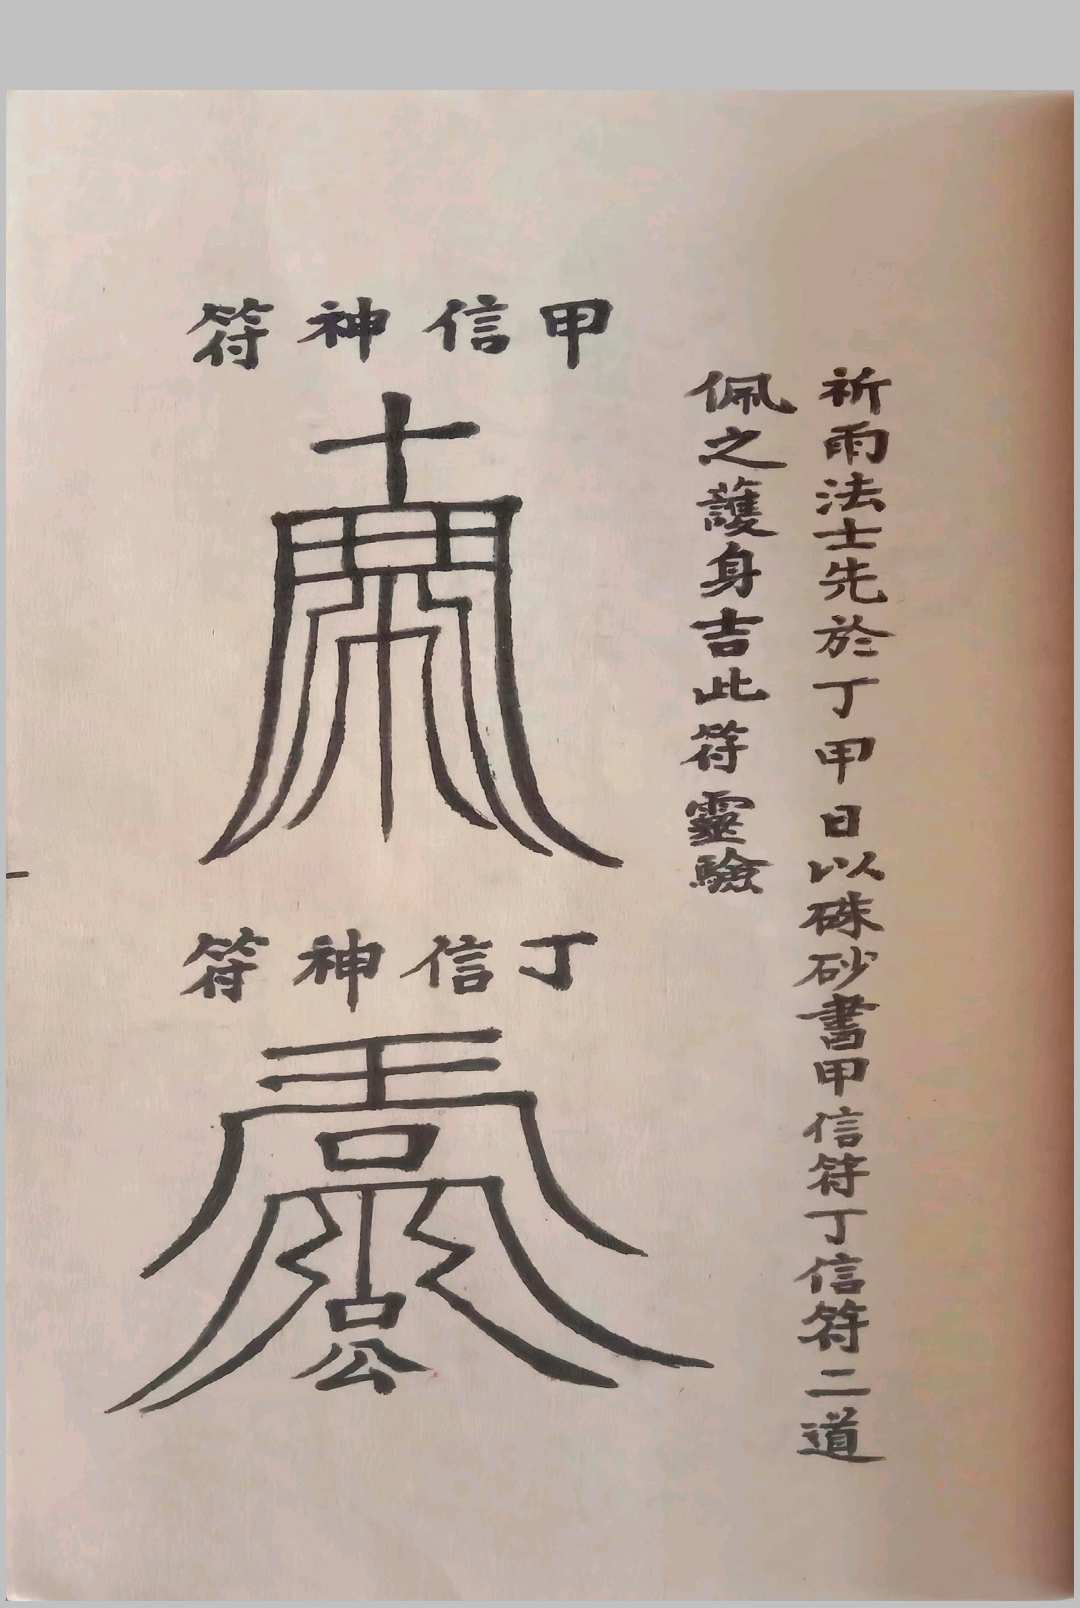 祈雨法士先於丁甲日以硃砂書甲信符丁信符二道
佩之護身吉此符靈驗
甲信神符
丁信神符